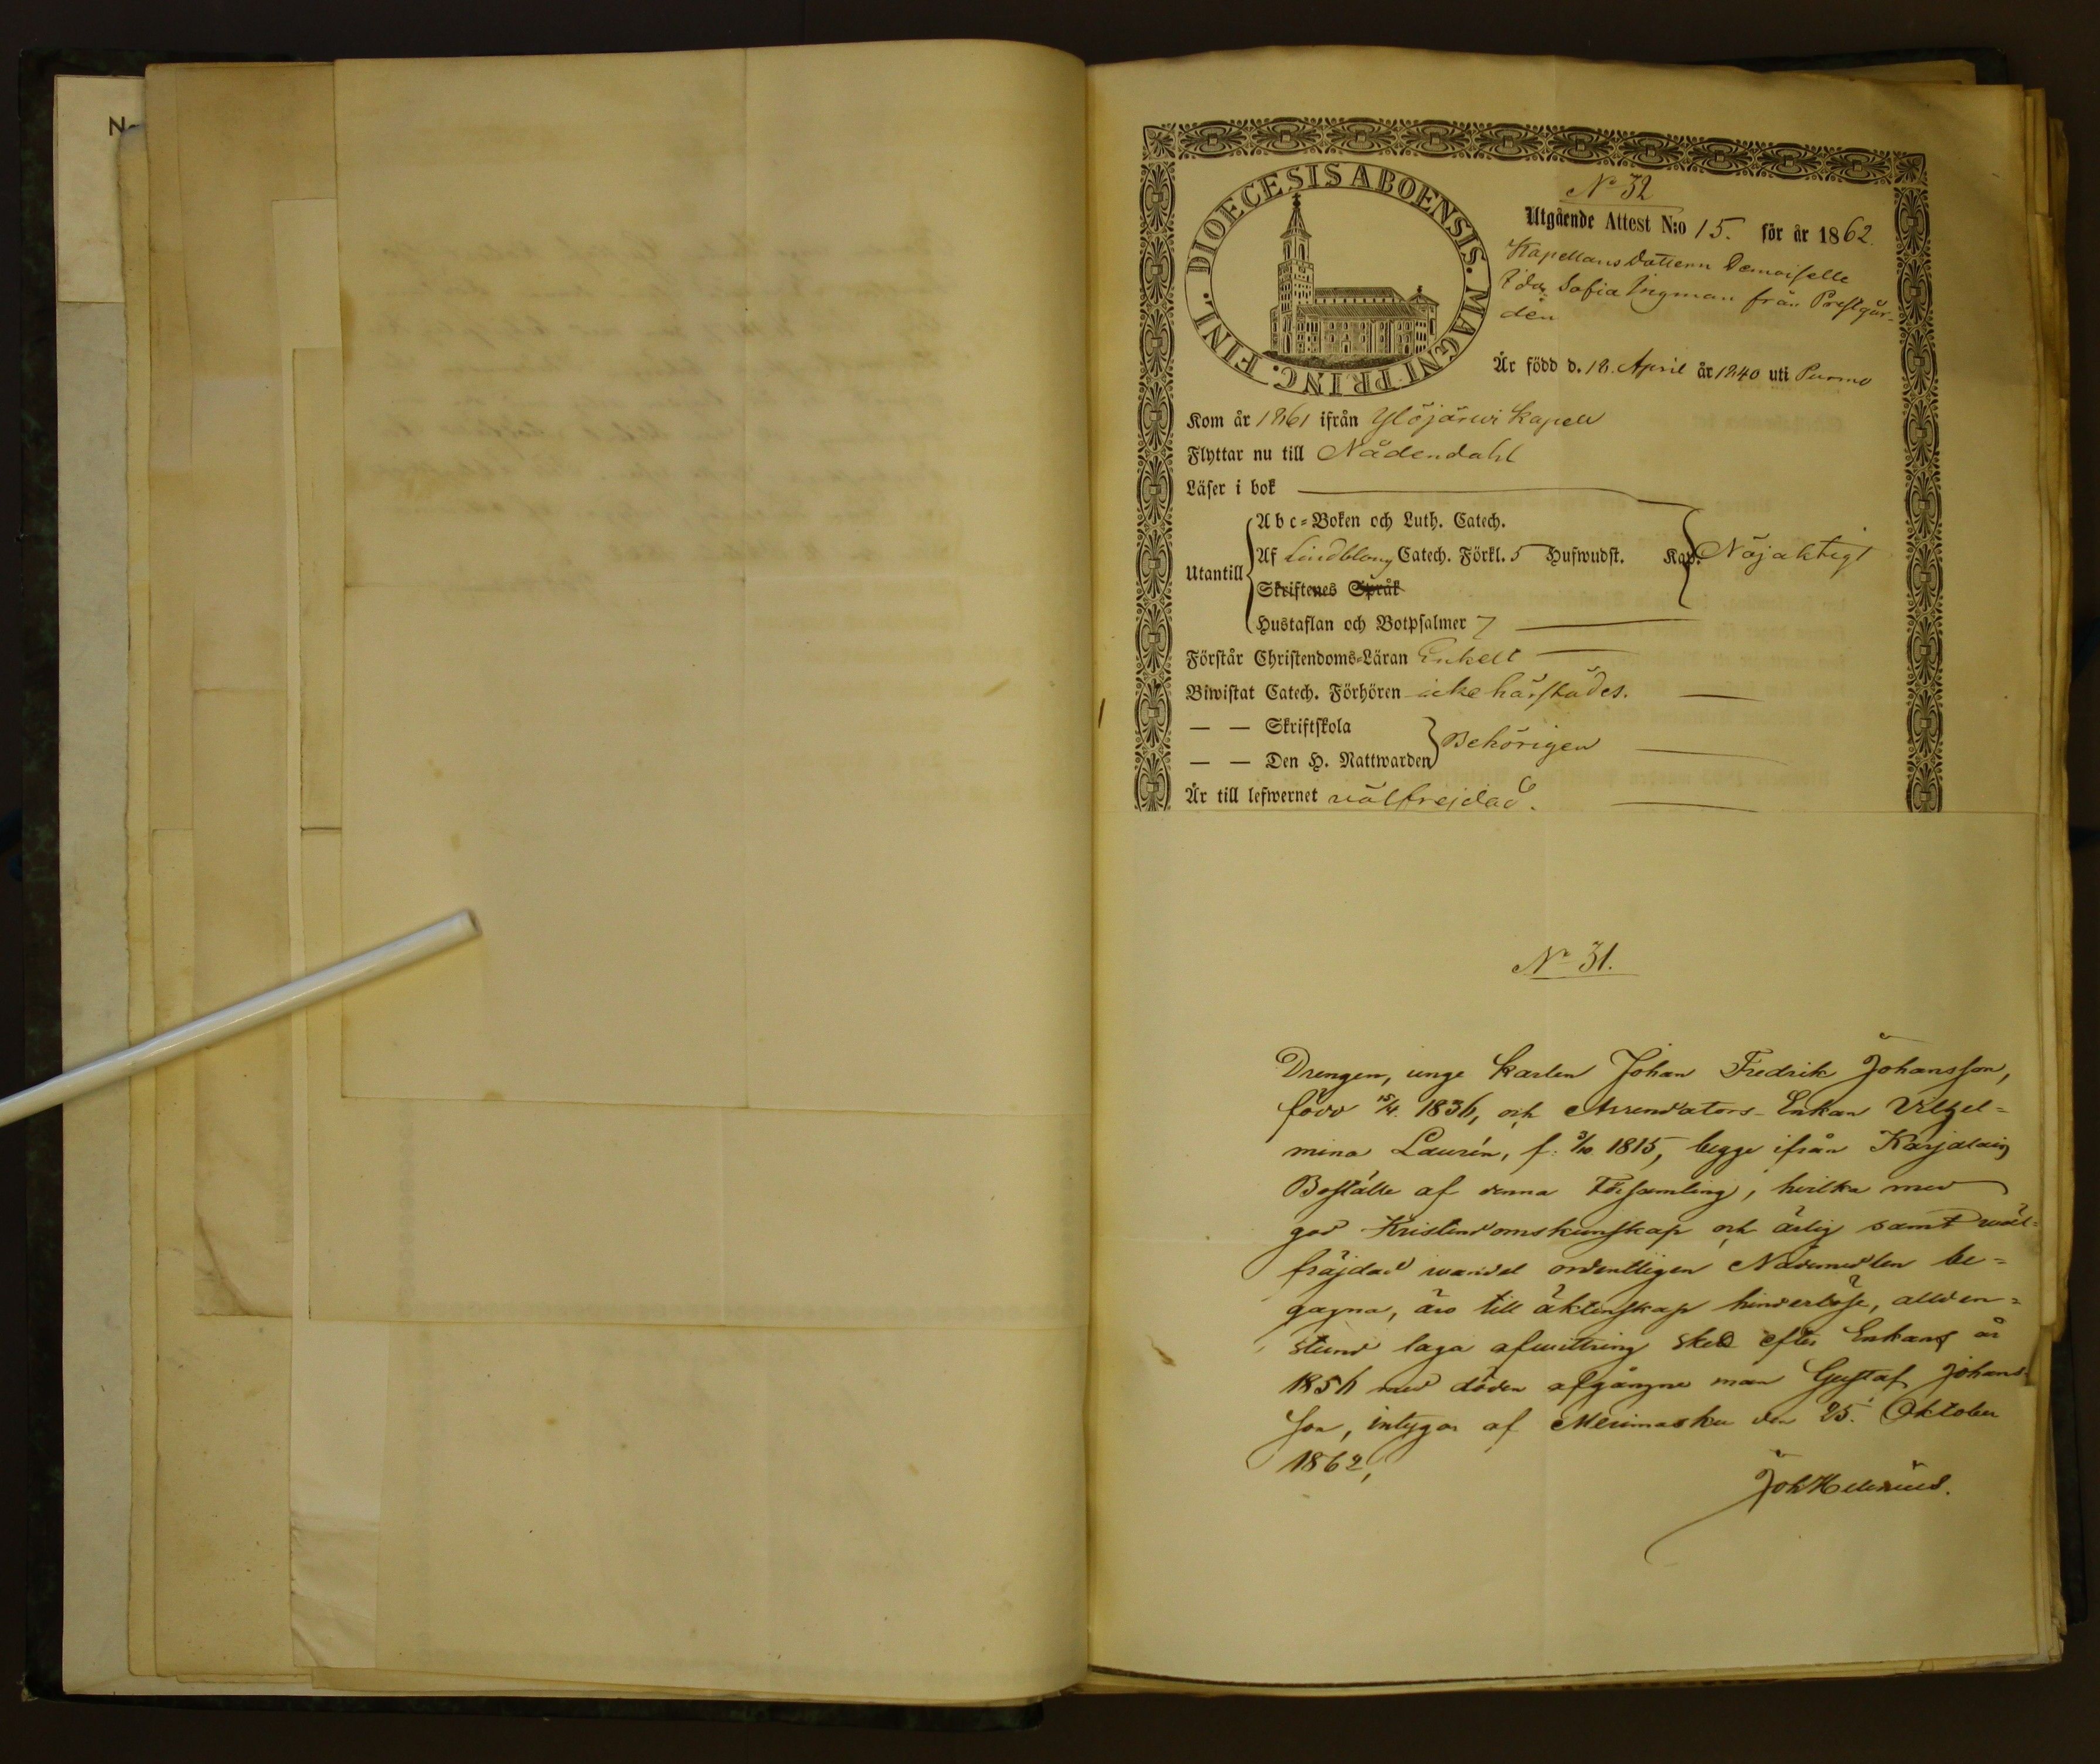 N
DIOECESIS ABOENSIS. MAGNI PRINC. FINL.
No 32
Utgående Attest N:o 15. för år 1862.
Kapellans dottern Demoiselle
Ida Sofia Ingman från Prestgår-
den
Är född d. 18. April år 1840 uti Purmo
Kom år 1861 ifrån Ylöjärvi Kapell
Flyttar nu till Nådendahl
Läser i bok
Utantill
Abc-Boken och Luth. Catech.
Af Lindbloms Catech. Förkl. 5 Hufwudst. Kap. Nöjaktigt
Skriftenes Språk
Hustaflan och Botpsalmer 7
Förstår Christendoms-Läran Enkelt
Biwistat Catech. Förhören icke härstädes.
— — Skriftskola
— — Den H. Nattwarden Behörigen
Är till lefwernet välfrejdad.
No 31.
Drengen, unge karlen Johan Fredrik Johansson,
född 15/4. 1836, och Arrendators-Enkan Vilhel=
mina Laurén, f: 3/10 1815, begge ifrån Karjalais
Boställe af denna Församling, hvilka med
god Kristendomskunskap och ärlig samt wäl=
fräjdad wandel ordentligen Nådemedlen be=
gagna, äro till äktenskap hinderlöse, allden=
stund laga afwittring sked efter Enkans år
1856 med döden afgångne man Gustaf Johans
son, intygas af Merimasku den 25. Oktober
1862,
Joh Helenius.